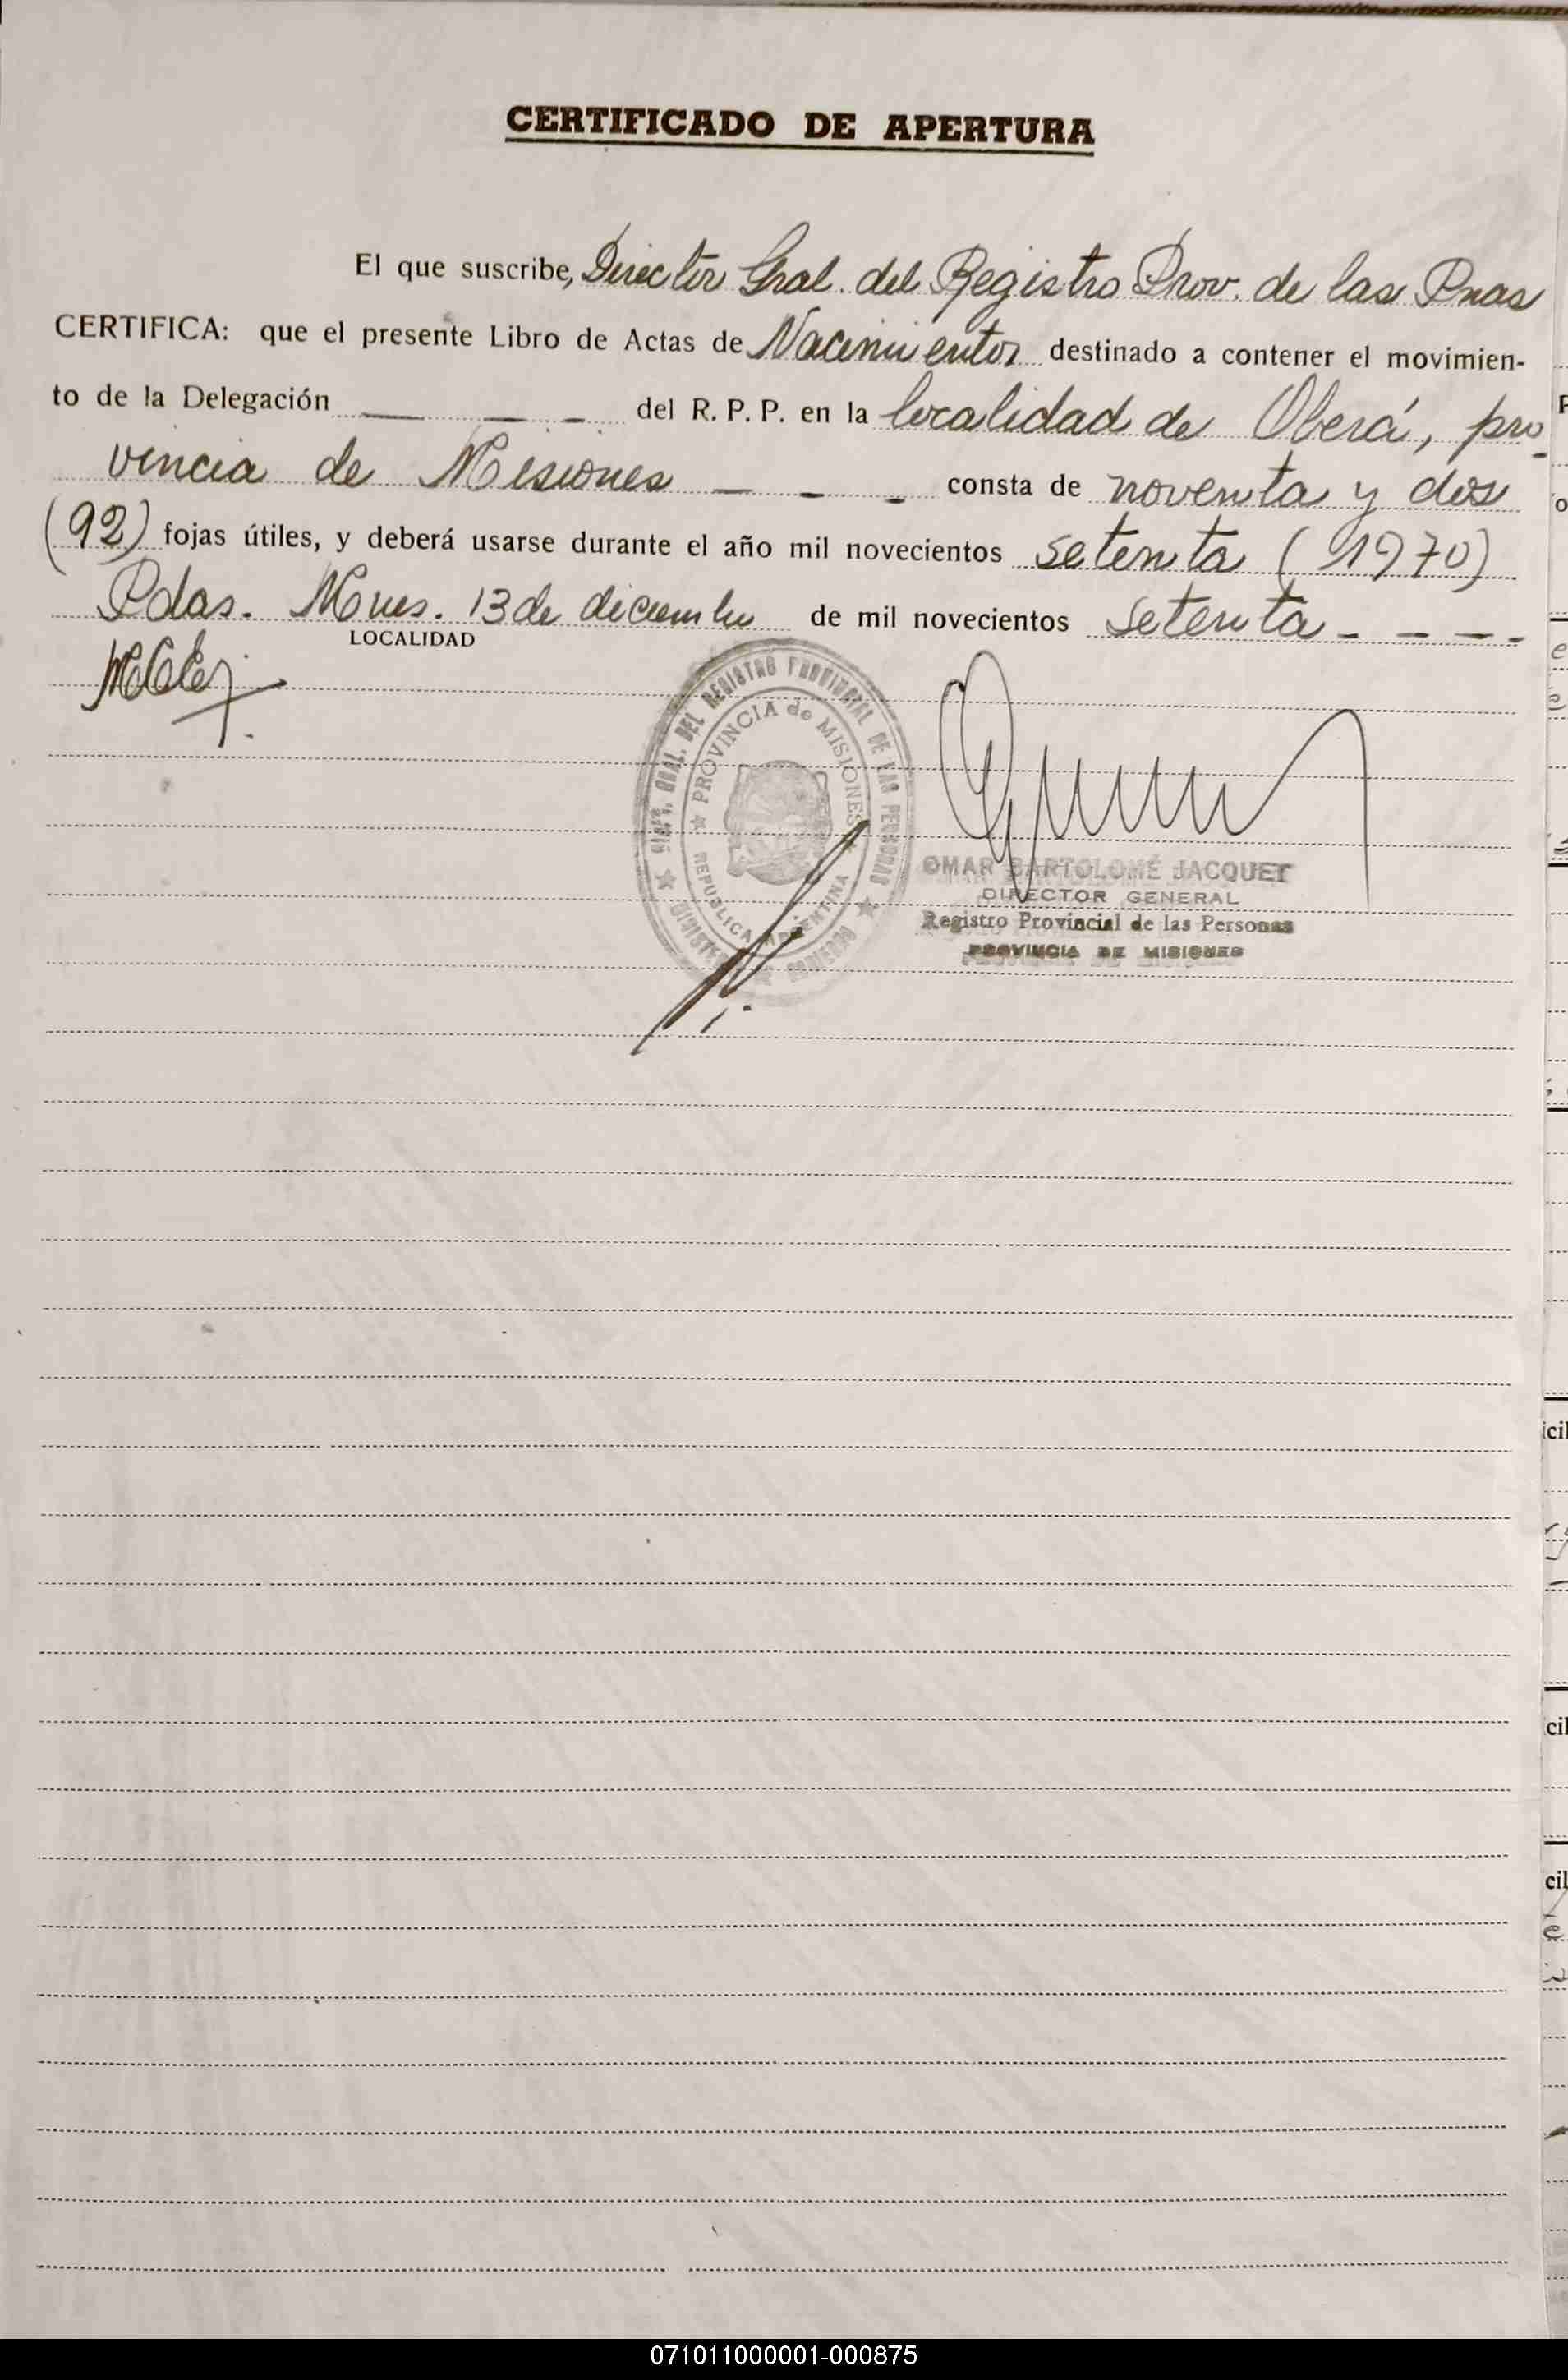 CERTIFICADO DE APERTURA
El que suscribe, Director Gral. del Registro Prov. de las Pnas
CERTIFICA: que el presente Libro de Actas de Nacimientos destinado a contener el movimien-
to de la Delegación — — - del R. P. P. en la localidad de Oberá, pro-
vincia de Misiones — - - consta de noventa y dos
(92) fojas útiles, y deberá usarse durante el año mil novecientos setenta (1970)
Pdas. Mnes. 13 de diciembre de mil novecientos setenta - - - -
LOCALIDAD
GRAL. DEL REGISTRO PROVINCIAL DE LAS PERSONAS
PROVINCIA de MISIONES
REPUBLICA ARGENTINA
OMAR BARTOLOMÉ JACQUET
DIRECTOR GENERAL
Registro Provincial de las Personas
PROVINCIA DE MISIONES
071011000001-000875